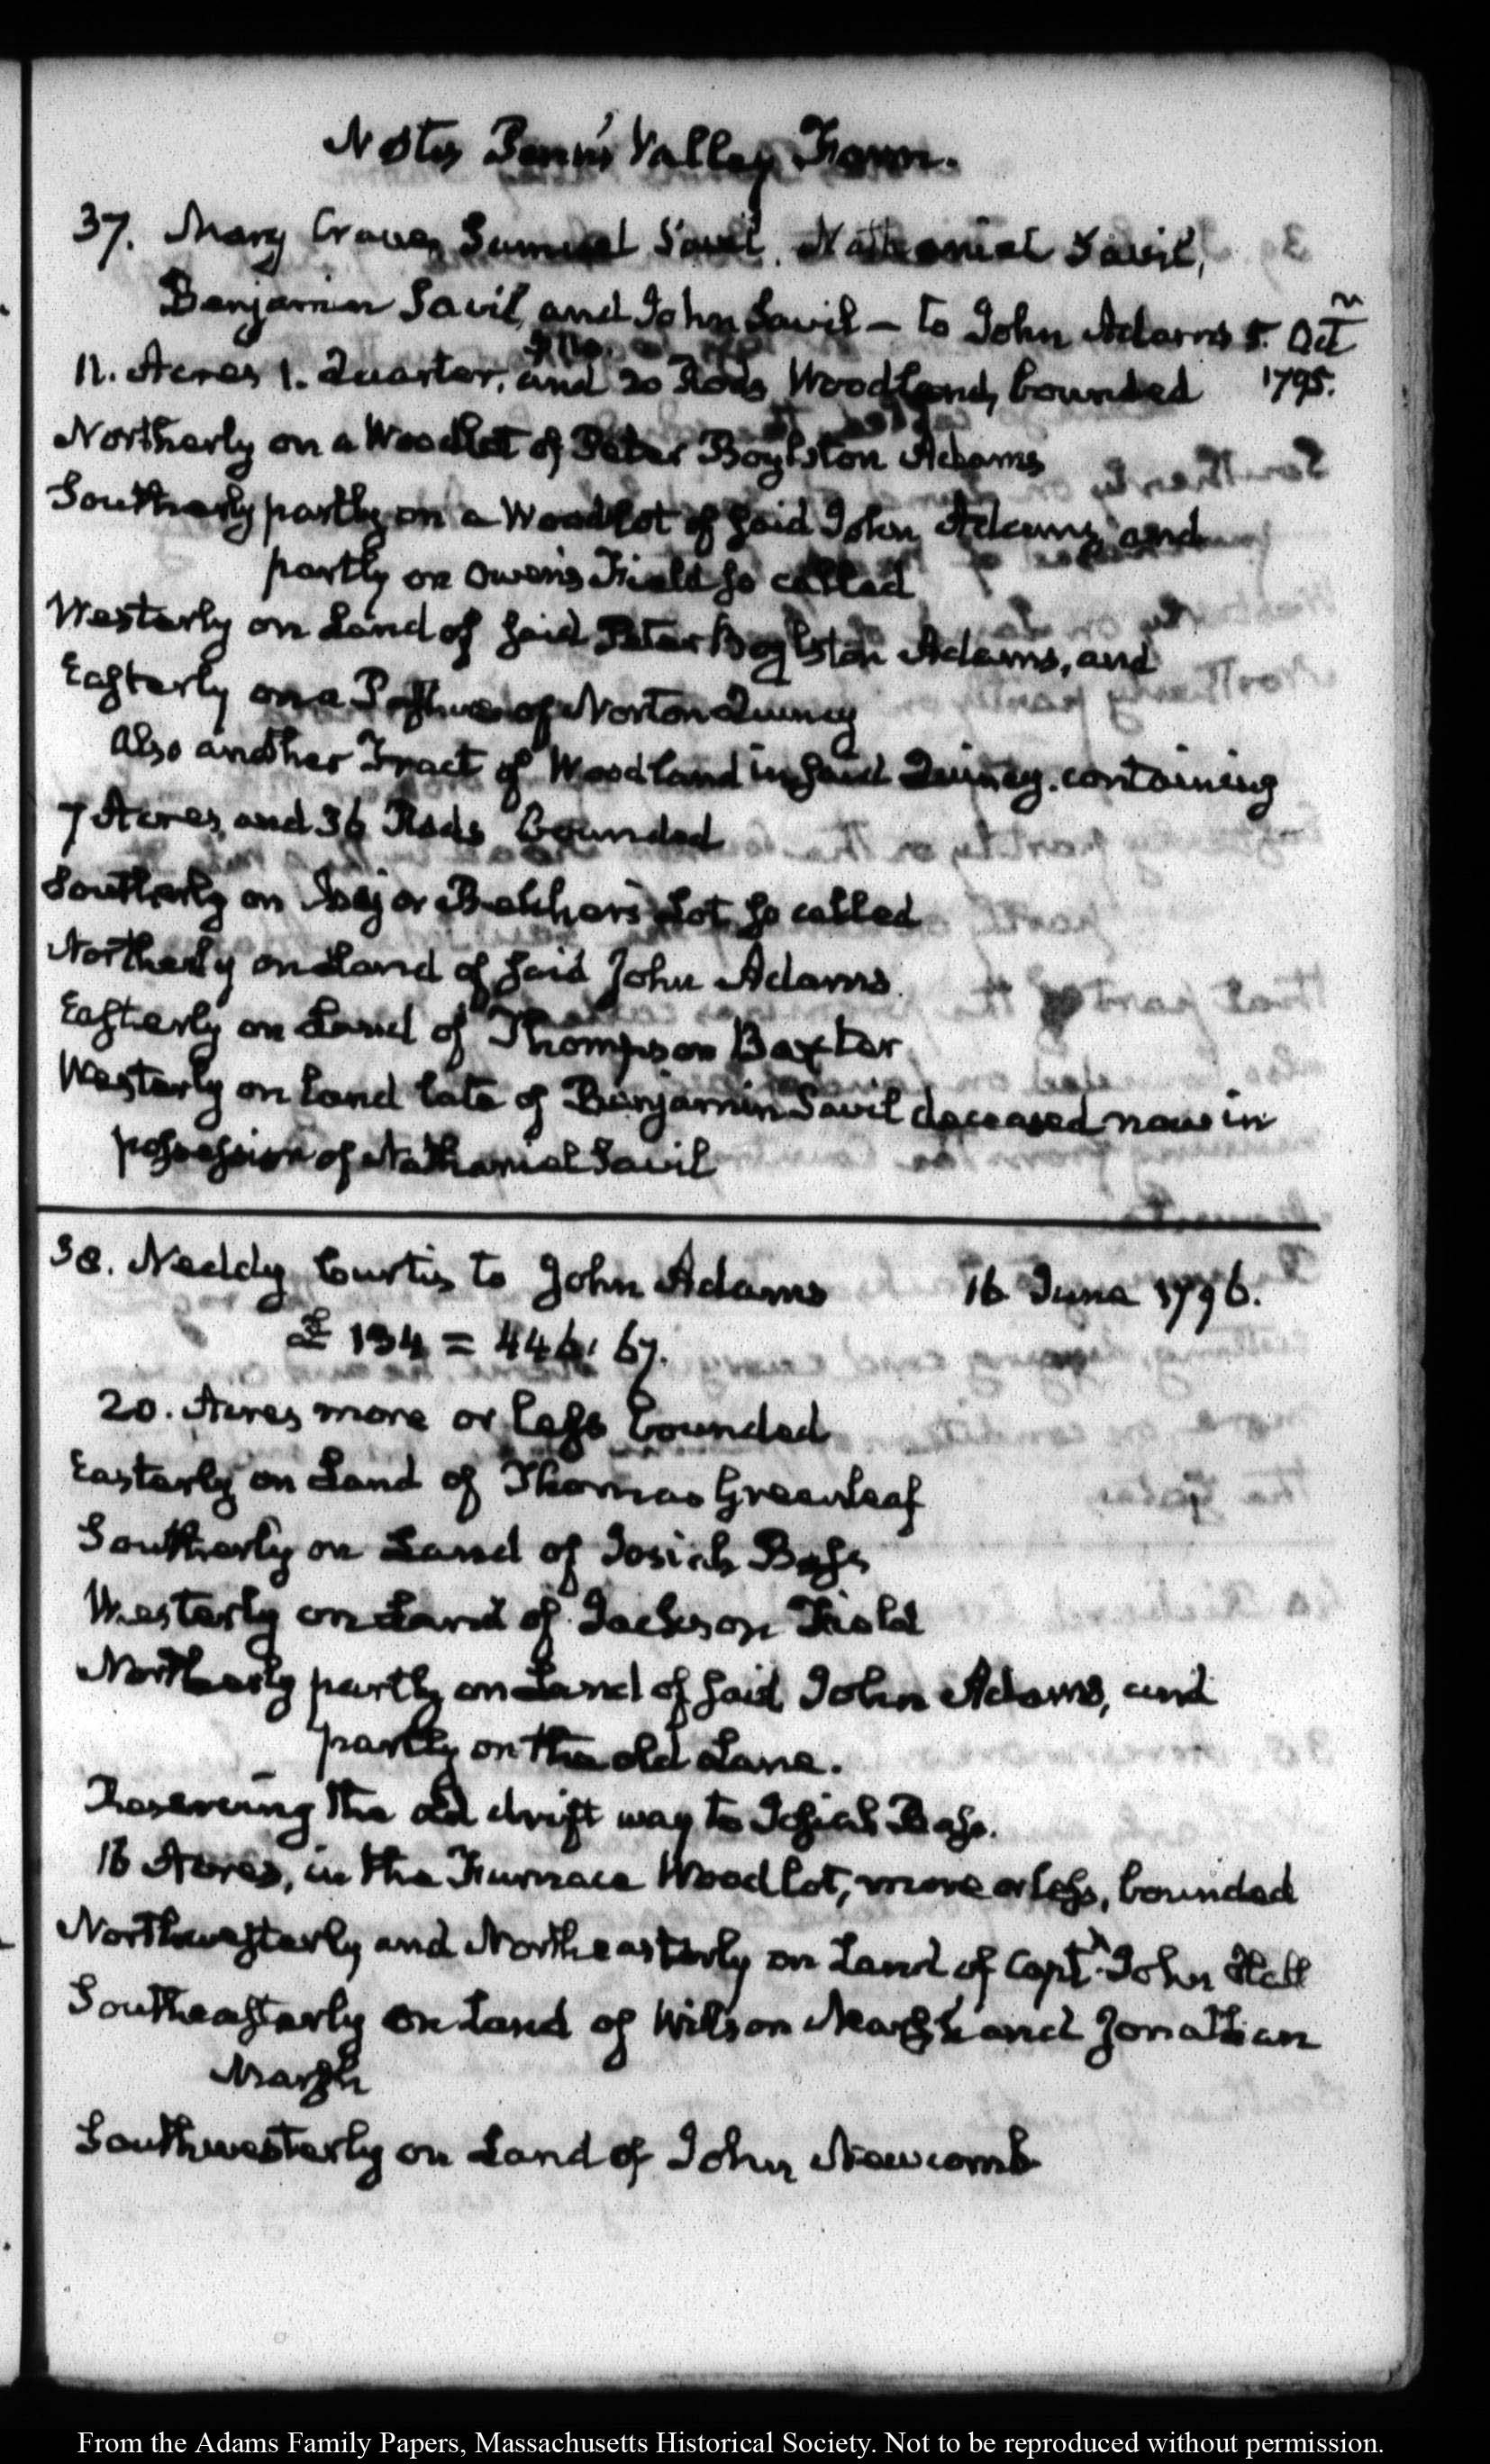 Notes Penn's Valley Farm.
37. Mary Samuel Savil. Nathaniel Savil,
Benjamin Savil, and John Savil – to John Adams 5. Oct
11. Acres 1. Quarter, and 20 Rods Woodland, bounded 1795.
Northerly on a Woodlot of Peter Boylston Adams
Southerly partly on a Woodlot of said John Adams, and
partly on Owen's Field so called
Westerly on Land of said Peter Boylston Adams, and
Easterly on a Pasture of Norton Quincy
Also another Tract of Woodland in said Quincy. containing
7 Acres and 36 Rods Bounded
Southerly on Major Lot so called
Northerly on Land of said John Adams.
Easterly on Land of Thompson Baxter
Westerly on Land late of Benjamin Savil deceased now in
possession of Nathanial Savil
38. Neddy Curtis to John Adams 16 June 1796.
£ 134 = 446: 67.
20. Acres more or less bounded
Easterly on Land of Thomas Greenleaf
Southerly on Land of Josiah Bass
Westerly on Land of Jackson Field
Northerly partly on Land of said John Adams, and
partly on the old Lane.
Reserving the old drift way to Josiah Bass.
16 Acres, in the Furnace Woodlot, more or less, bounded
Northwesterly and Northeasterly on Land of Capt. John Hall
Southeasterly on Land of Wilson Marsh and Jonathan
Marsh
Southwesterly on Land of John Newcomb
From the Adams Family Papers, Massachusetts Historical Society. Not to be reproduced without permission.